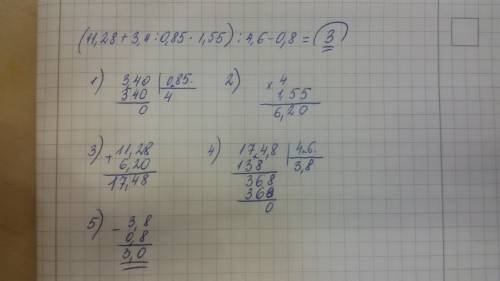 (11,28 + 3,4 : 0,85 · 1,55) : 4,6 - 0,8 = 3
1) 3,40 | 0,85
340 4
0
2) × 4
1,55
6,20
3) + 11,28
6,20
17,48
4) 17,4,8 | 4,6
138 3,8
368
368
0
5) - 3,8
0,8
3,0